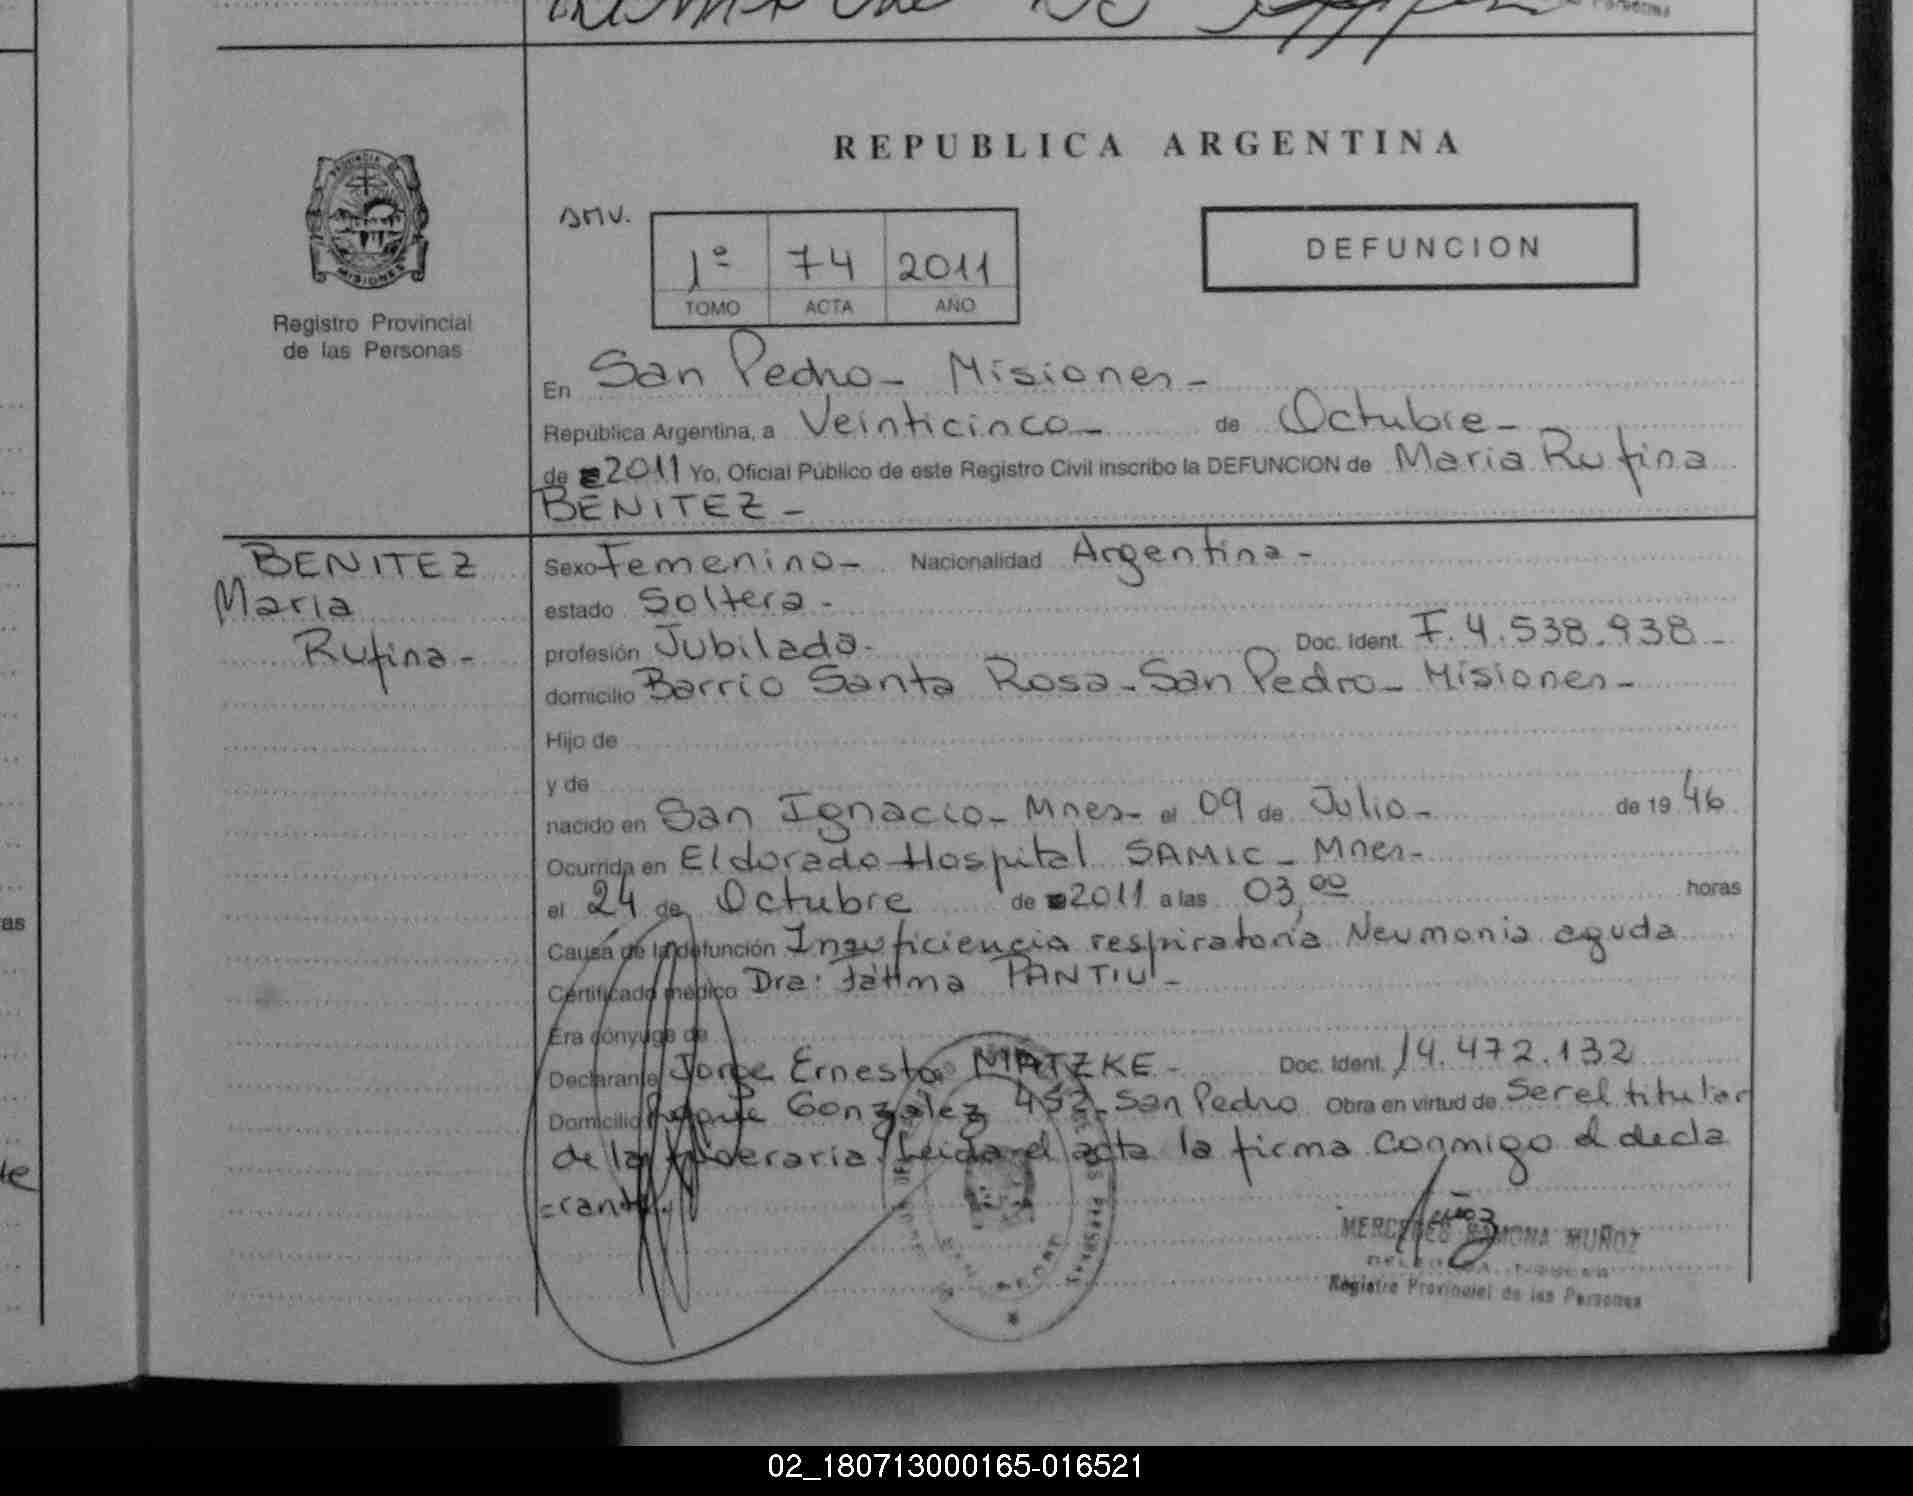 REPUBLICA ARGENTINA
PROVINCIA DE
MISIONES
Registro Provincial
de las Personas
SMV.
1º 74 2011
TOMO ACTA AÑO
DEFUNCION
En San Pedro - Misiones -
República Argentina, a Veinticinco - de Octubre -
de 2011 Yo, Oficial Público de este Registro Civil inscribo la DEFUNCION de Maria Rufina
BENITEZ -
BENITEZ
Maria
Rufina -
Sexo Femenino - Nacionalidad Argentina -
estado Soltera -
profesión Jubilada - Doc. Ident. F. 4.538.938 -
domicilio Barrio Santa Rosa - San Pedro - Misiones -
Hijo de
y de
nacido en San Ignacio - Mnes - el 09 de Julio - de 19 46
Ocurrida en Eldorado Hospital SAMIC - Mnes -
el 24 de Octubre de 2011 a las 03,00 horas
Causa de la defunción Insuficiencia respiratoria Neumonia aguda
Certificado médico Dra: Fátima PANTIU -
Era cónyuge de
Declarante Jorge Ernesto MATZKE - Doc. Ident. 14.472.132
Domicilio Roque Gonzalez 452 - San Pedro Obra en virtud de Ser el titular
de la funeraria. Leida el acta la firma conmigo el decla
=rante.
MERCEDES RAMONA MUÑOZ
Registro Provincial de las Personas
as
te
02_180713000165-016521